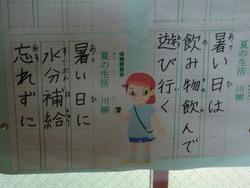 夏の生活 川柳
暑い日は
飲み物飲んで
遊び行く
保健委員会
夏の生活 川柳
暑い日に
水分補給
忘れずに